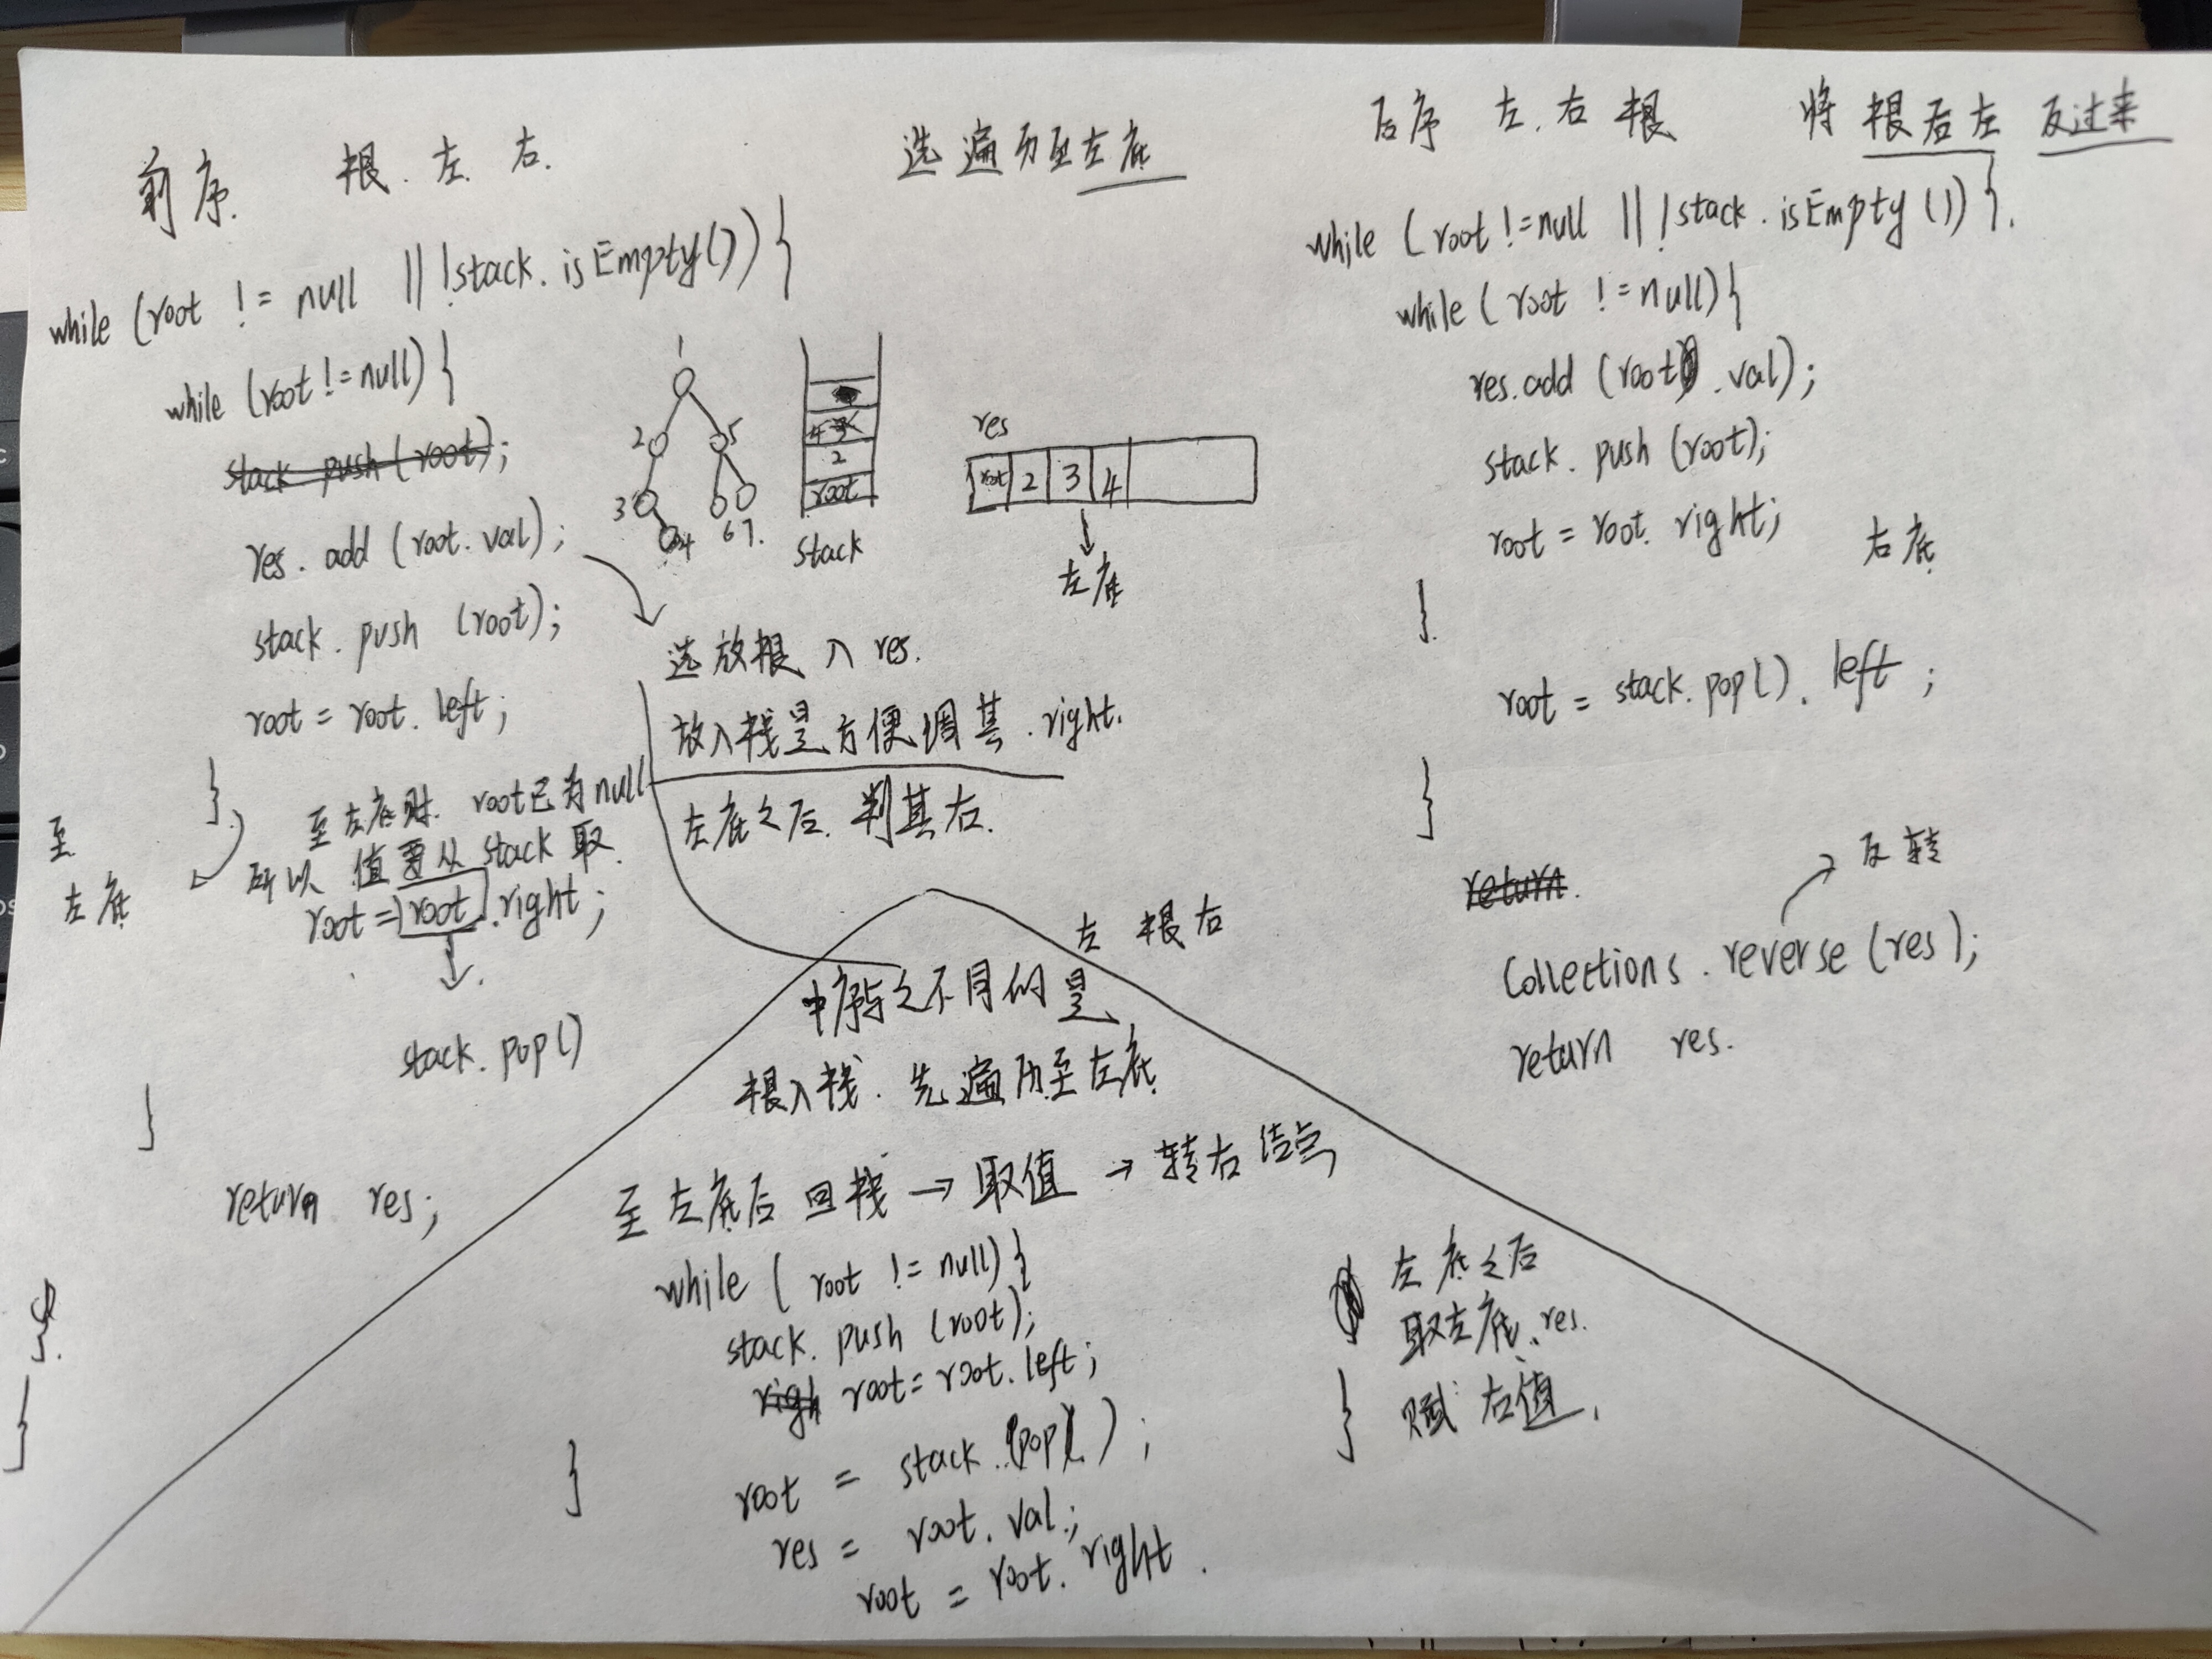 前序. 根.左.右.
while (root != null || !stack.isEmpty()) {
while (root != null) {
stack push (root);
res. add (root. val);
stack. push (root);
root = root. left;
}
至左底
至左底时. root已为null
所以 值要从 stack 取.
root = root .right;
stack. pop()
}
return res;
选遍历至左底
1
2
5
3
4
6 7.
2
root
stack
res
root 2 3 4
左底
选放根入 res.
放入栈是方便调其.right.
左底之后. 判其右.
左 根 右
中序与之不同的是
根入栈. 先遍历至左底
至左底后回栈 → 取值 → 转右结点
while ( root != null) {
stack. push (root);
righ root = root. left;
}
root = stack. pop( ) ;
res = root. val;
root = root. right .
左底之后
取左底、res.
} 赋右值.
后序 左.右 根 将 根右左 反过来
while ( root != null || !stack . isEmpty ()) {.
while ( root != null) {
res. add (root . val);
stack. push (root);
root = root. right; 右底
}
root = stack. pop() . left ;
}
return.
反转
Collections . reverse (res);
return res.